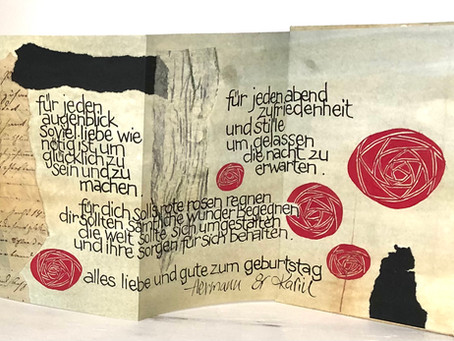 für jeden
augenblick
soviel liebe wie
nötig ist, um
glücklich zu
sein und zu
machen.
für jeden abend
zufriedenheit
und stille
um gelassen
die nacht zu
erwarten.
für dich soll's rote rosen regnen
dir sollten sämtliche wunder begegnen
die welt sollte sich umgestalten
und ihre sorgen für sich behalten.
alles liebe und gute zum geburtstag
Hermann &